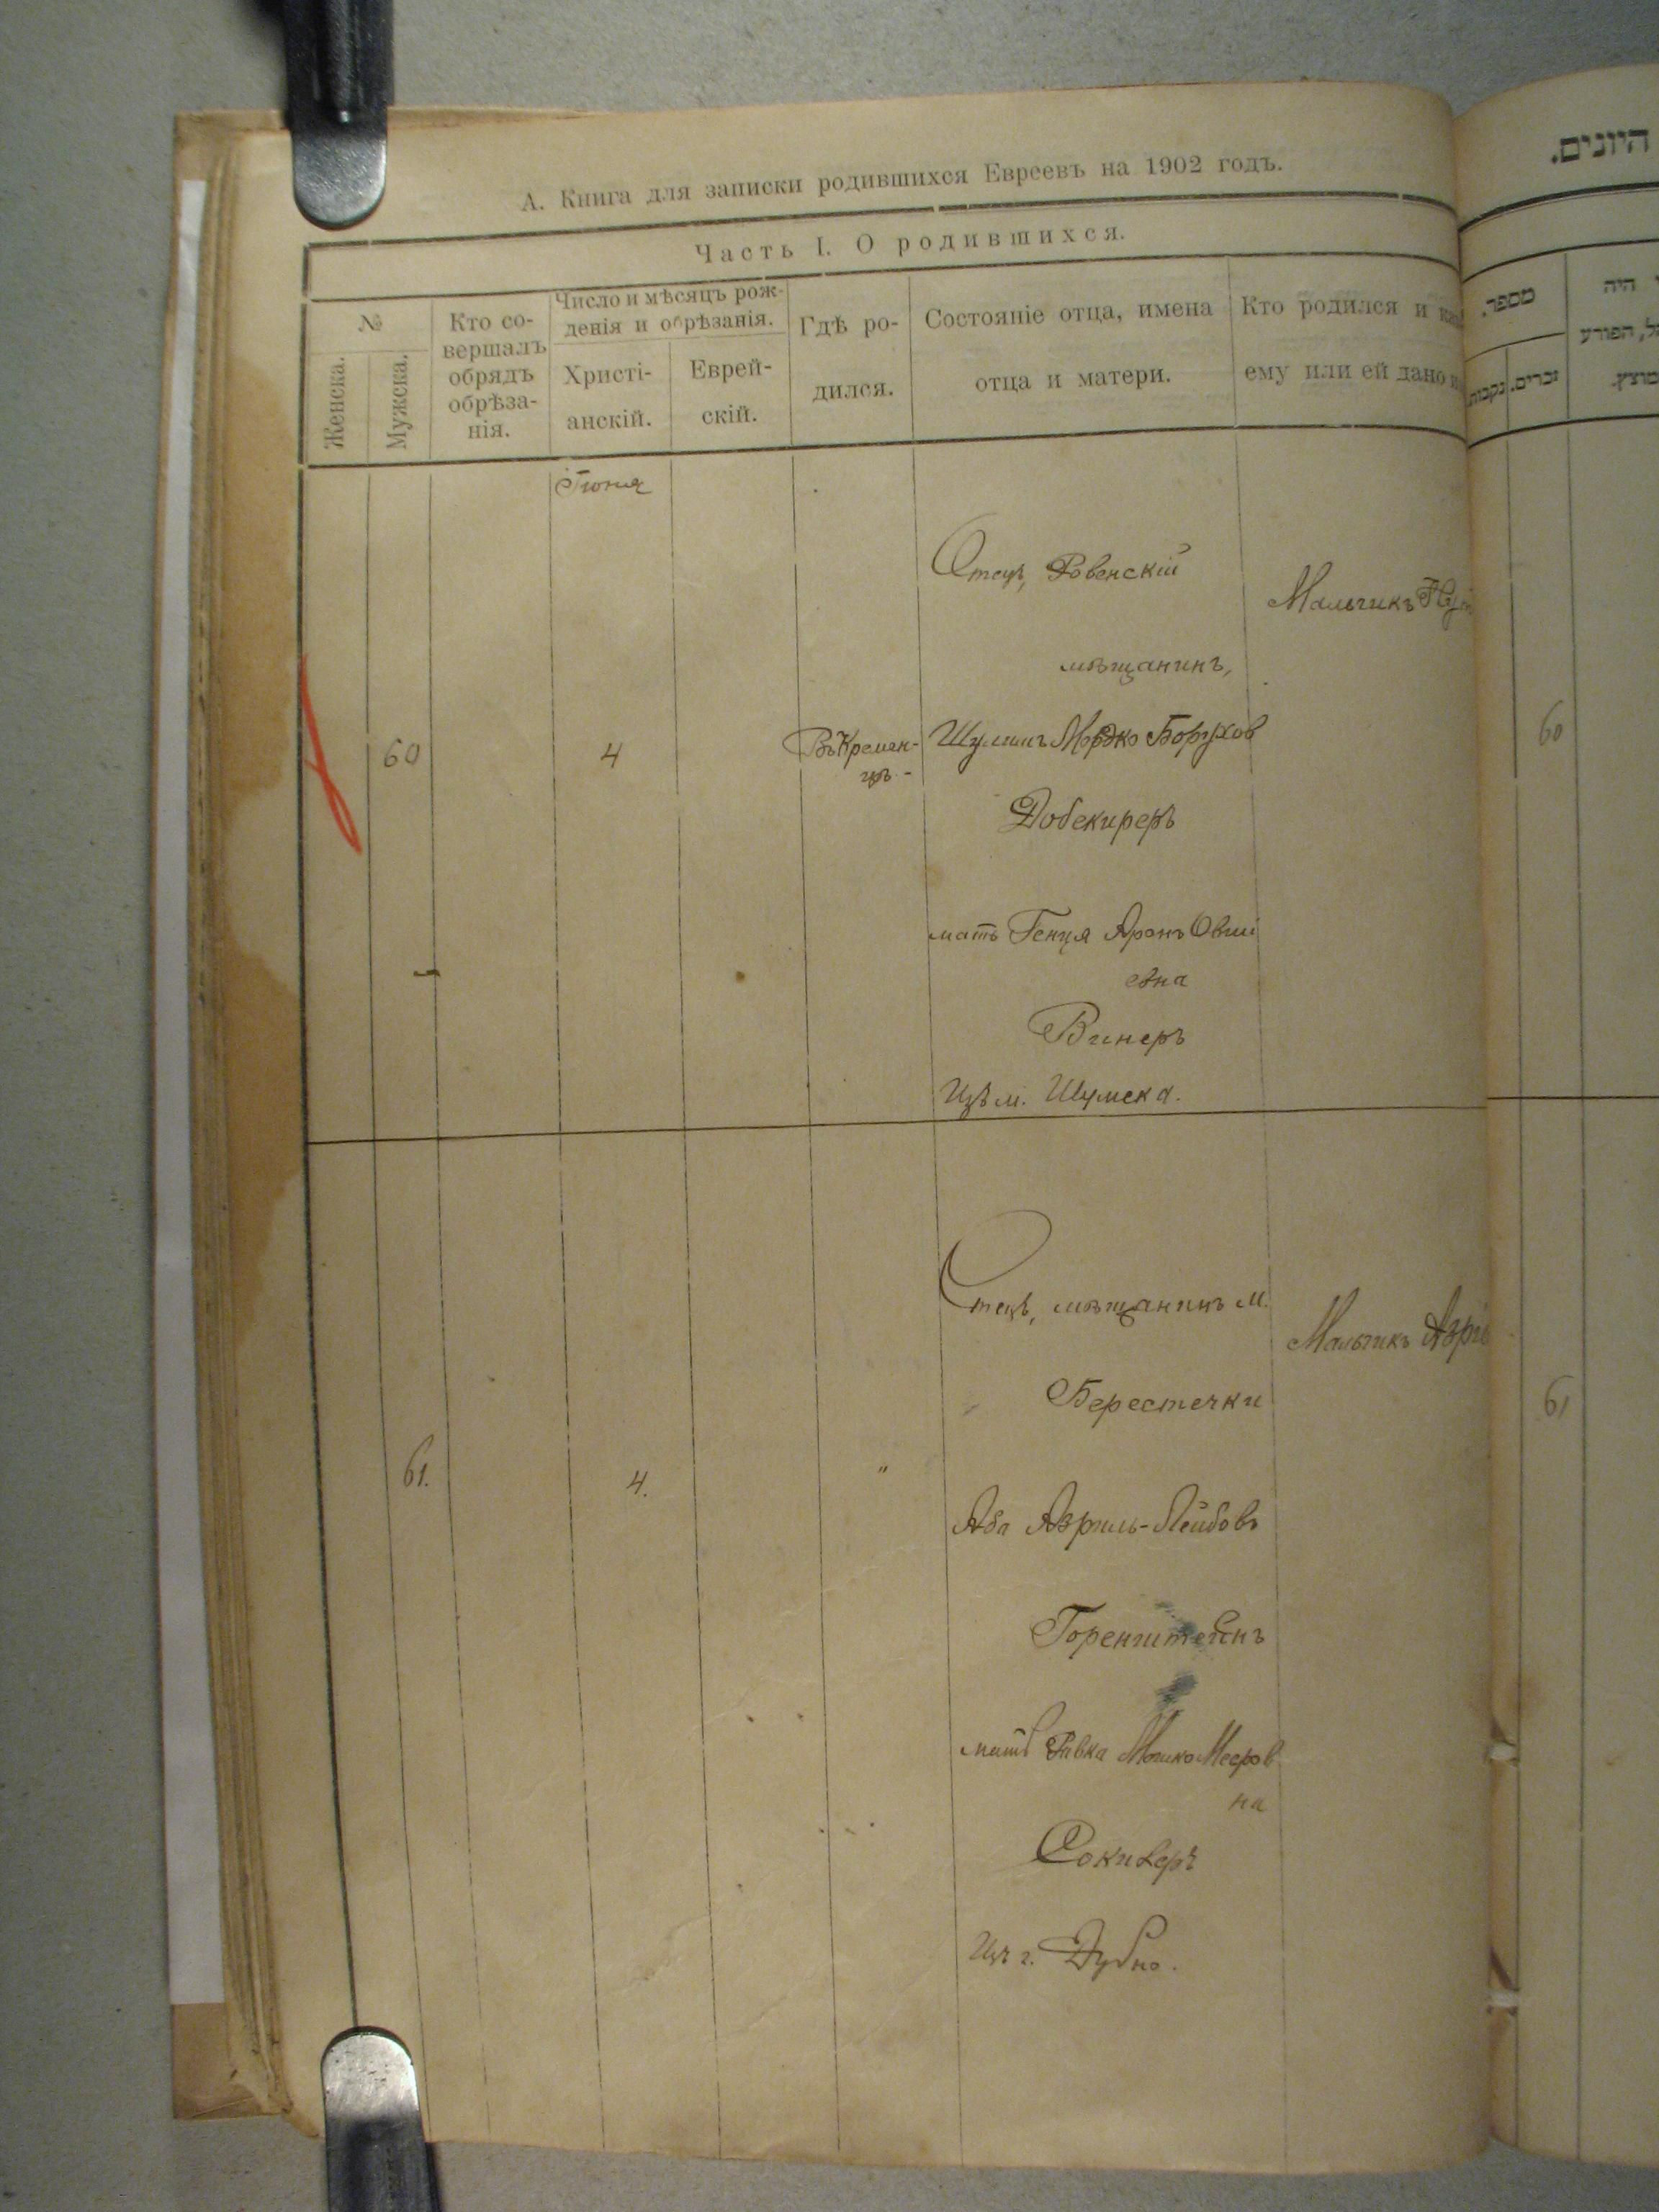 А. Книга для записки родившихся Евреевъ на 1902 годъ.
Часть I. О родившихся.
№
Женска.
Мужска.
Кто со-
вершалъ
обрядъ
обрѣза-
нія.
Число и мѣсяцъ рож-
денія и обрѣзанія.
Христі-
анскій.
Еврей-
скій.
Гдѣ ро-
дился.
Состояніе отца, имена
отца и матери.
Кто родился и
ему или ей дано
Іюня
60
4
Въ Кремен-
цѣ -
Отецъ, Ровенскій
мѣщанинъ,
Шулимъ Мордко Борухов
Добекиреръ
мать Генця Аронъ Овші
евна
Винеръ
Изъ м. Шумска.
Мальчикъ
61.
4.
"
Отецъ, мѣщанинъ м.
Берестечки
Аба Азриль-Лейбовъ
Горенштейнъ
мать Ривка Мошко Мееров
на
Сокиверъ
Изъ г. Дубно.
Мальчикъ
היונים.
מספר.
נקבות.
זכרים.
היה
הפורע
60
61